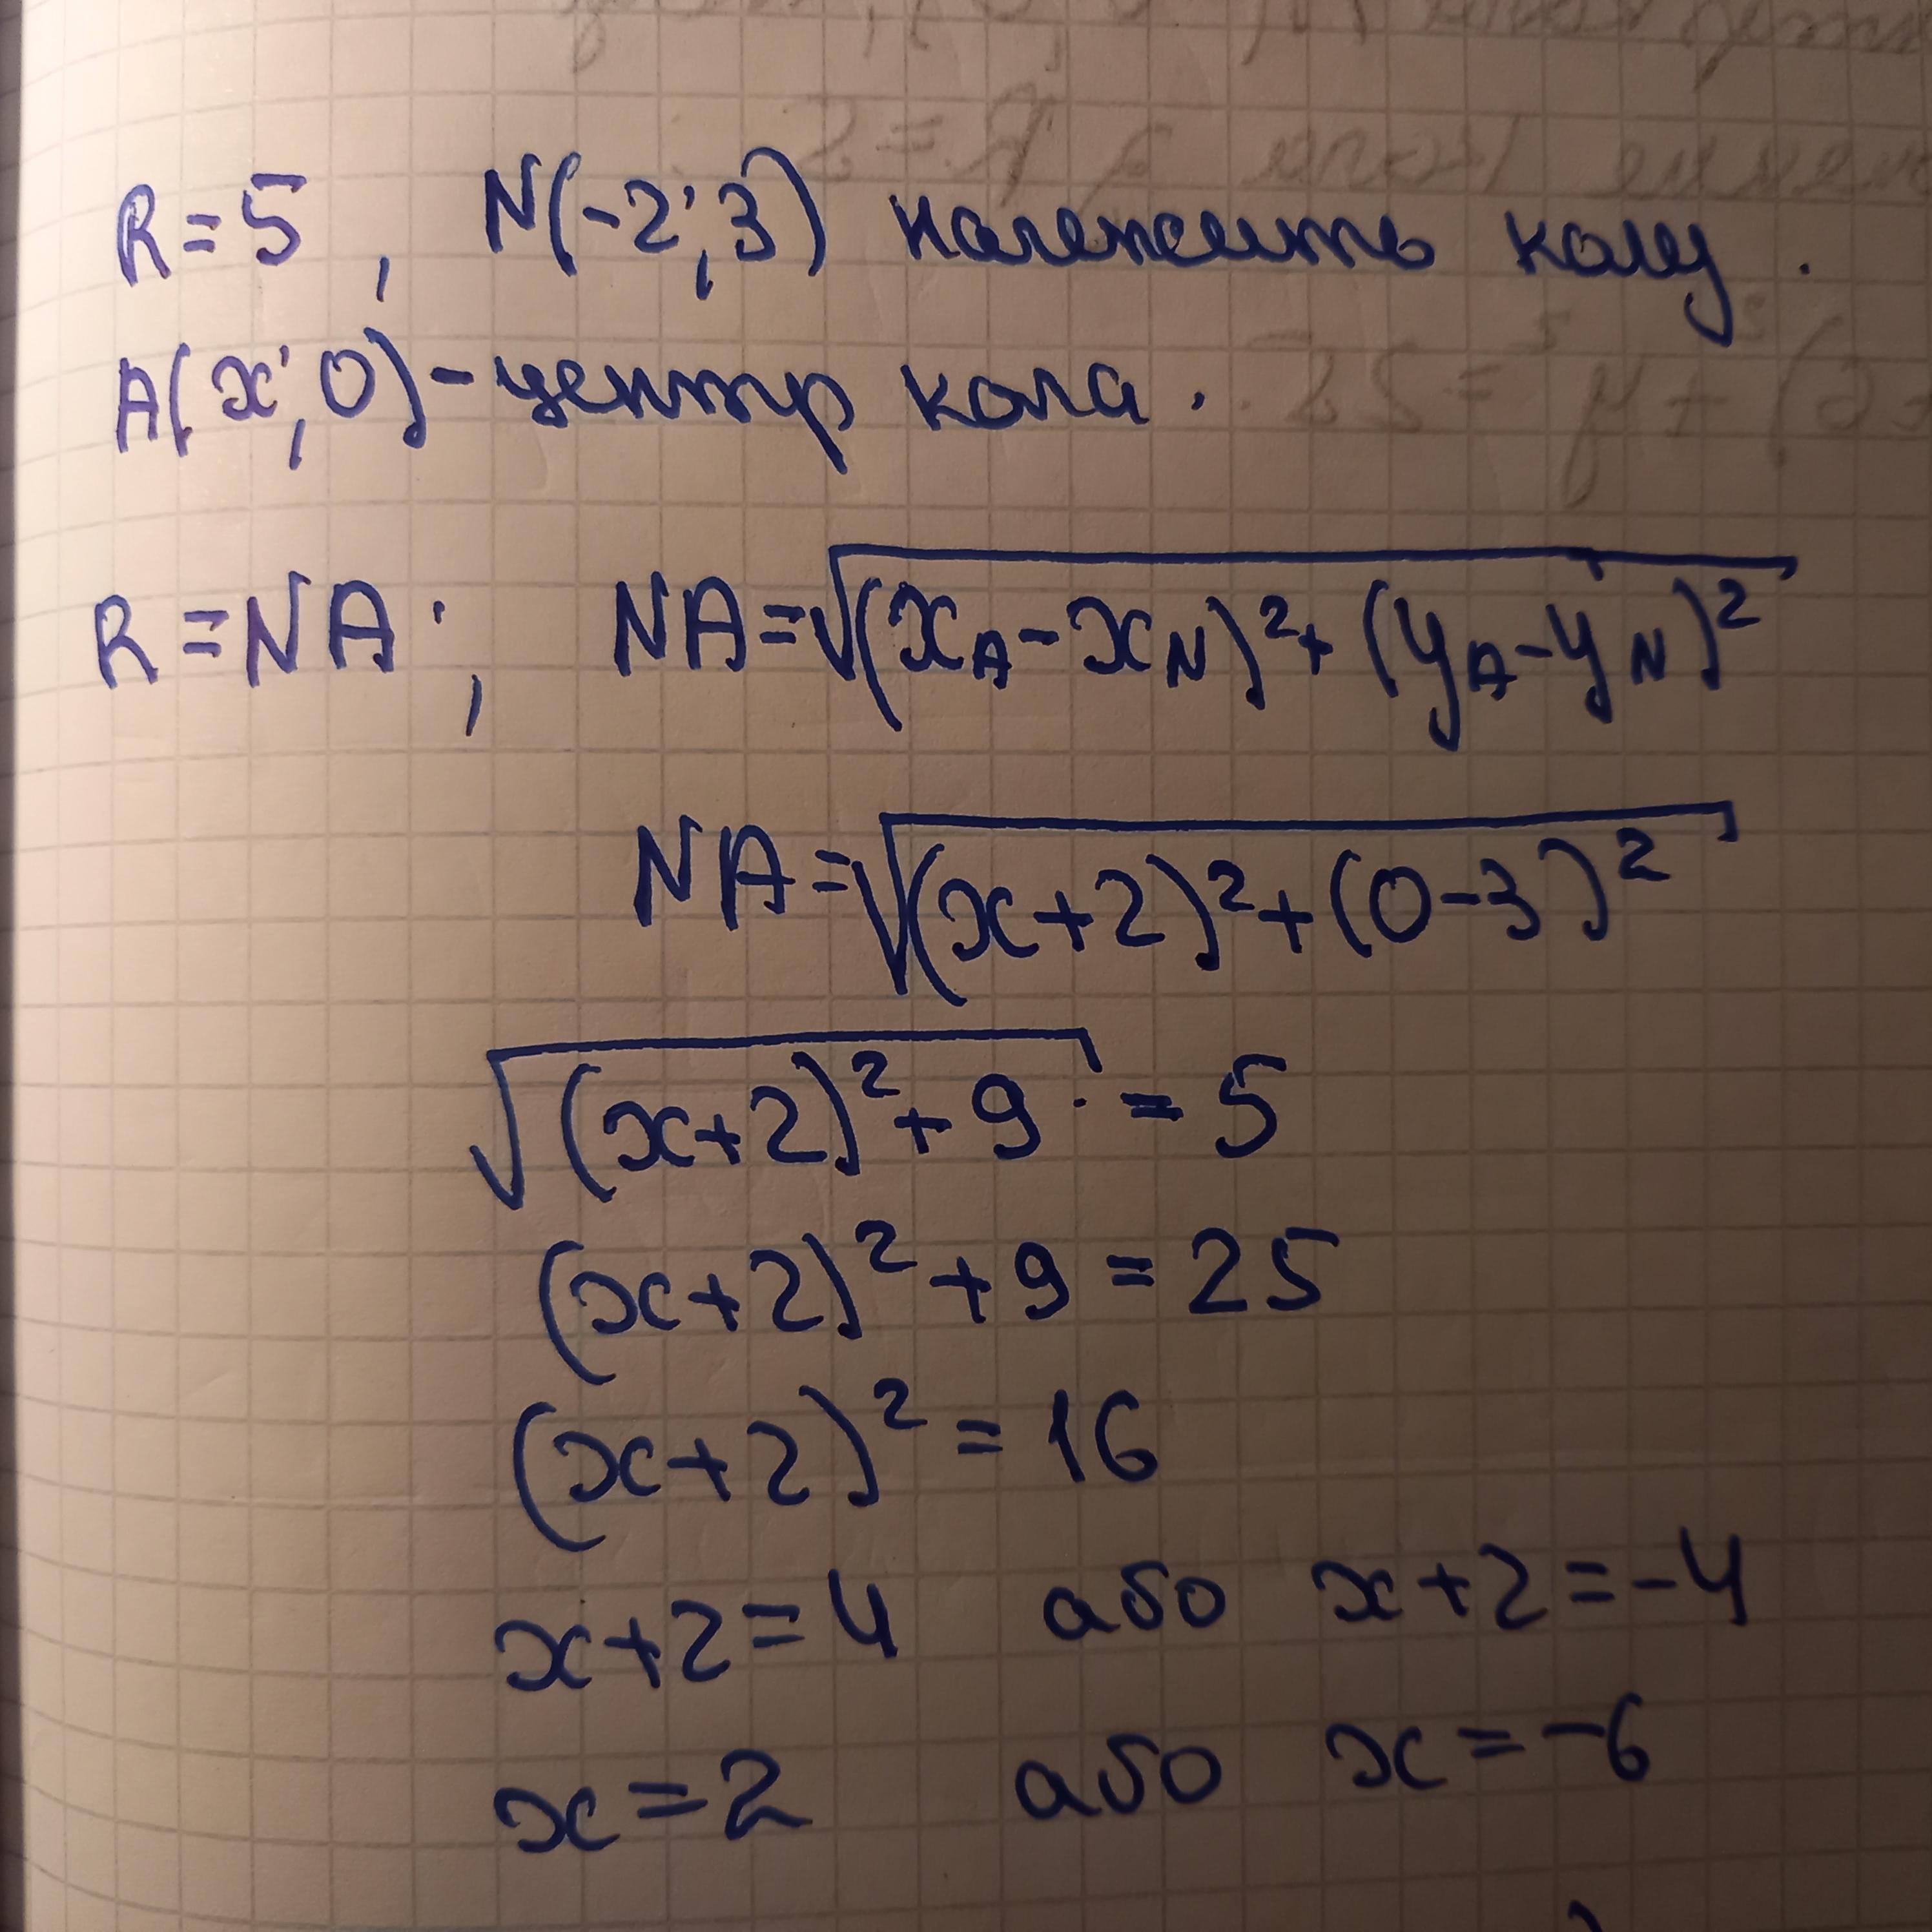 R=5, N(-2;3) належить колу.
A(x;0)-центр кола.
R=NA; NA=√(x_A-x_N)²+(y_A-y_N)²
NA=√(x+2)²+(0-3)²
√(x+2)²+9=5
(x+2)²+9=25
(x+2)²=16
x+2=4 або x+2=-4
x=2 або x=-6